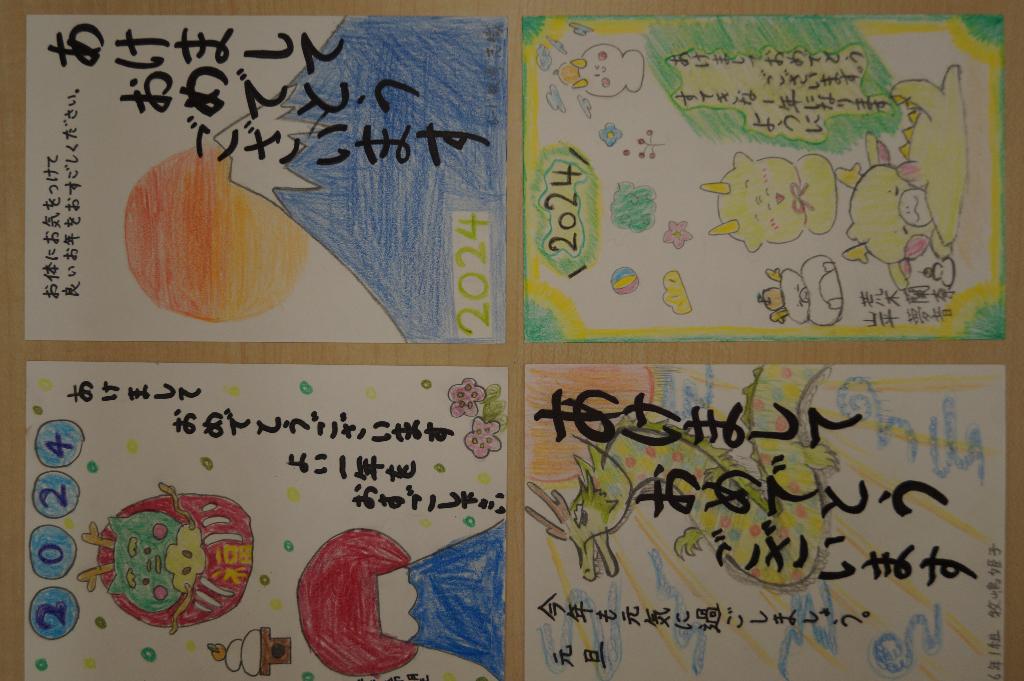 あけまして
おめでとう
ございます
お体にお気をつけて
良いお年をおすごしください。
2024
あけましておめでとう
ございます。
すてきな1年になります
ように
2024
2024
あけまして
おめでとうございます
よい一年を
おすごし
福
あけまして
おめでとう
ございます
今年も元気に過ごしましょう。
元旦
6年1組